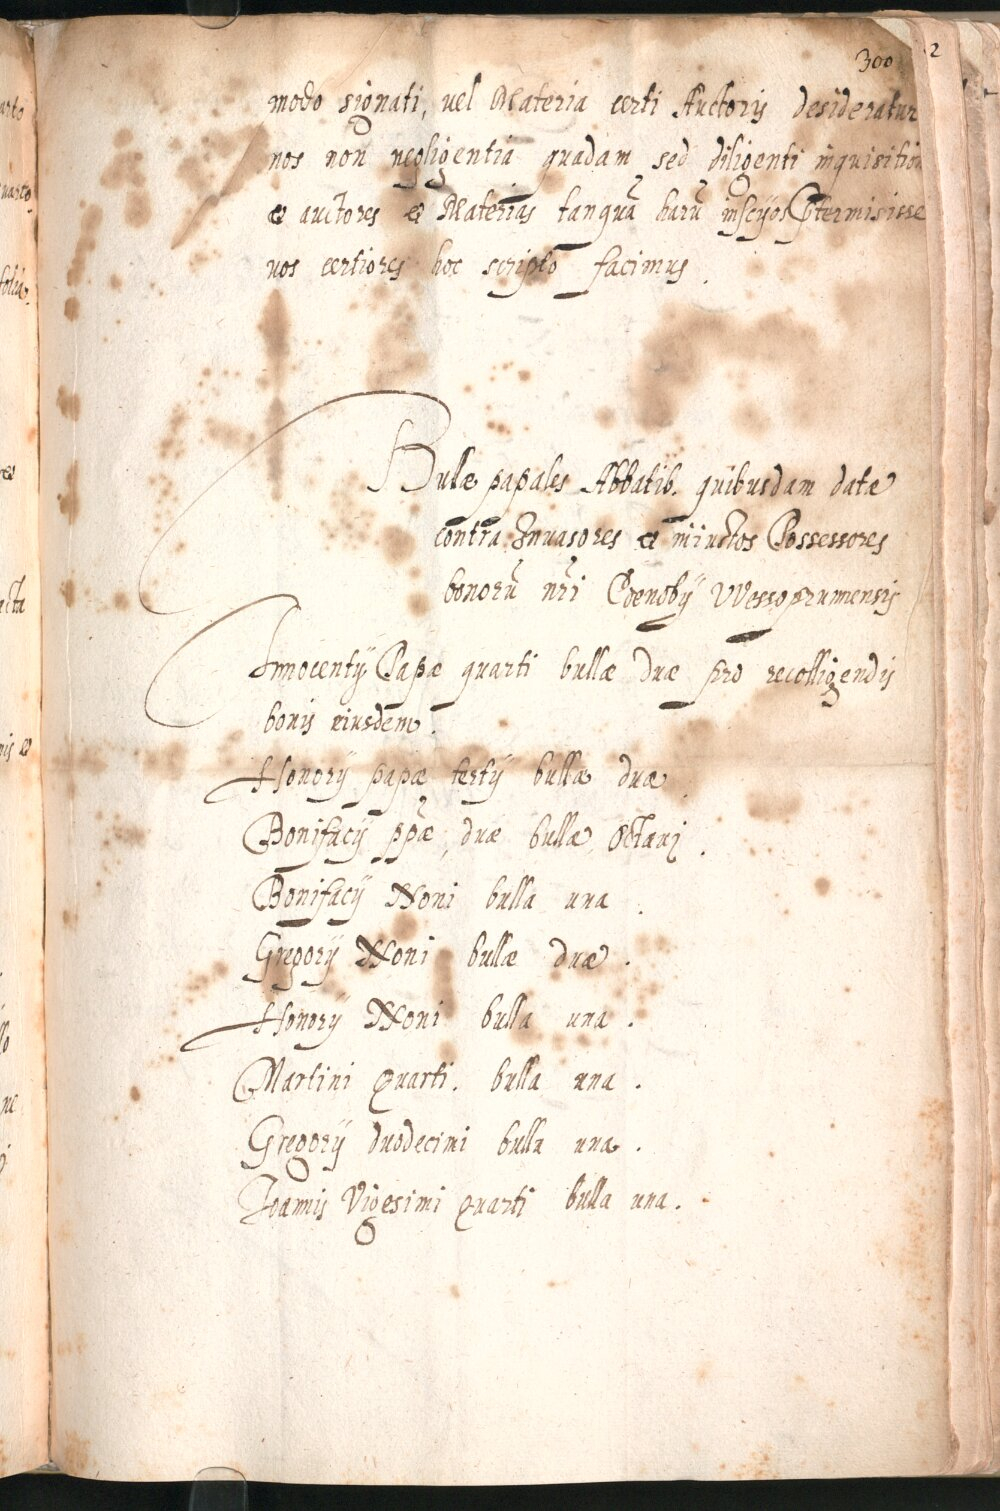 300
2
modo signati, vel Materia certi Auctoris desideratur
nos non negligentia quadam sed diligenti inquisitio
& auctores & Materias tanquã harũ inscijos prętermisisse
vos certiores hoc scripto facimus.
Bullæ papales Abbatib. quibusdam datæ
contra Inuasores & iniustos Possessores
bonorũ nr̃i Coenobij Wessoprunnensis
Innocentij Papæ quarti bullæ duæ pro recolligendis
bonis eiusdem.
Honorij papæ tertij bullæ duæ
Bonifacij pp̃æ, duæ bullæ Octaui.
Bonifacij Noni bulla una.
Gregorij Noni bullæ duæ.
Honorij Noni bulla una.
Martini Quarti. bulla una.
Gregorij duodecimi bulla una.
Joannis Vigesimi quarti bulla una.